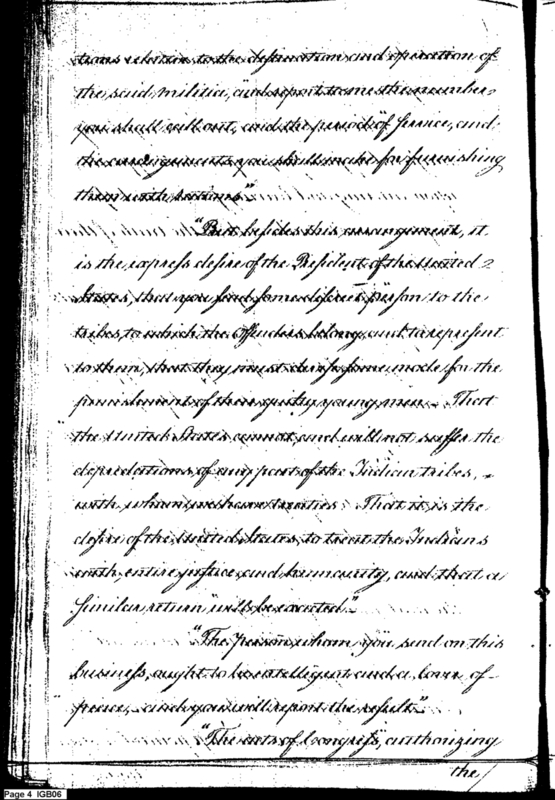 tions relative to the destination and operation of
the said militia, and report to me the number
you shall call out, and the period of service, and
the arrangements you shall make for furnishing
them with rations."
"But besides this arrangement, it
is the express desire of the President of the United
States, that you send some discreet person to the
tribes, to which the offenders belong, and to represent
to them, that they must devise some mode for the
punishment of their guilty young men. That
the United States cannot, and will not suffer the
depredations of any part of the Indian tribes,
with whom we have treaties. That it is the
desire of the United States, to treat the Indians
with entire justice and humanity, and that a
similar return will be exacted."
"The person whom you send on this
business, ought to be intelligent and a lover of
peace, and you will report the result."
"The acts of Congress, authorizing
the/
Page 4 IGB06